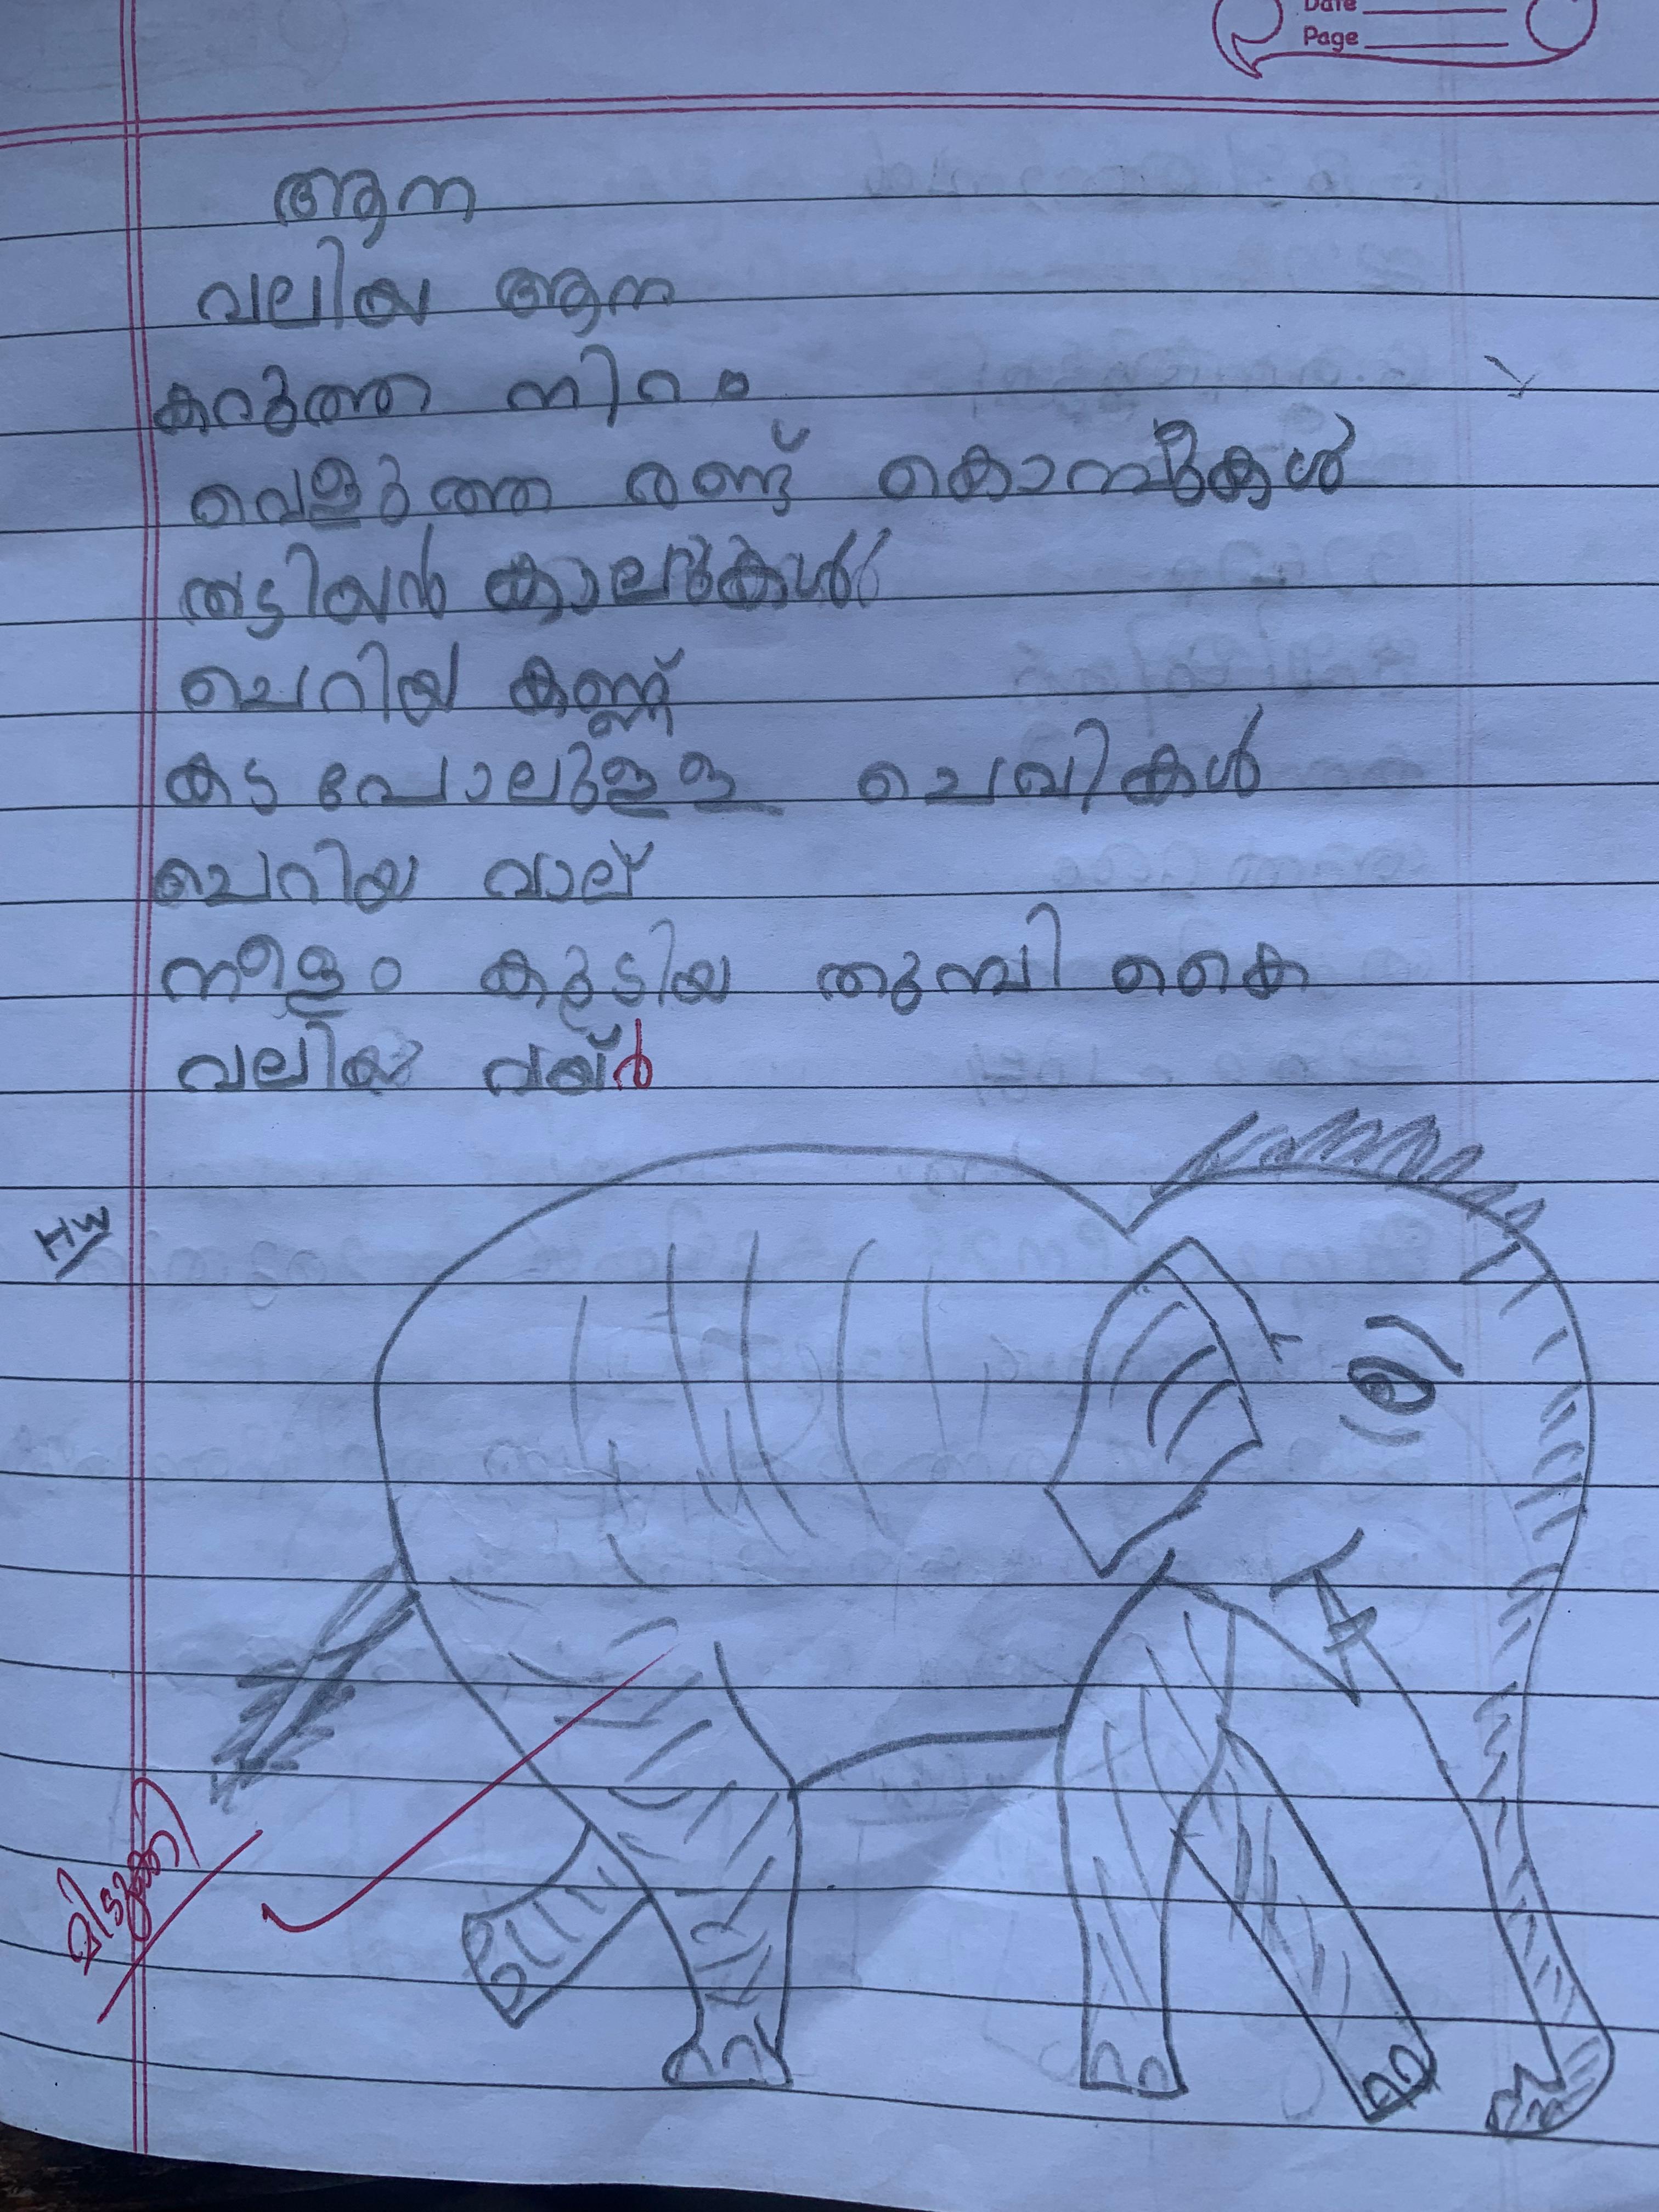 Date
Page
ആന
വലിയ ആന
കറുത്ത നിറം
വെളുത്ത രണ്ട് കൊമ്പുകൾ
തടിയൻ കാലുകൾ
ചെറിയ കണ്ണ്
കട പോലുള്ള ചെവികൾ
ചെറിയ വാല്
നീളം കൂടിയ തുമ്പി കൈ
വലിയ വയ്ർ
HW
മിടുക്കി